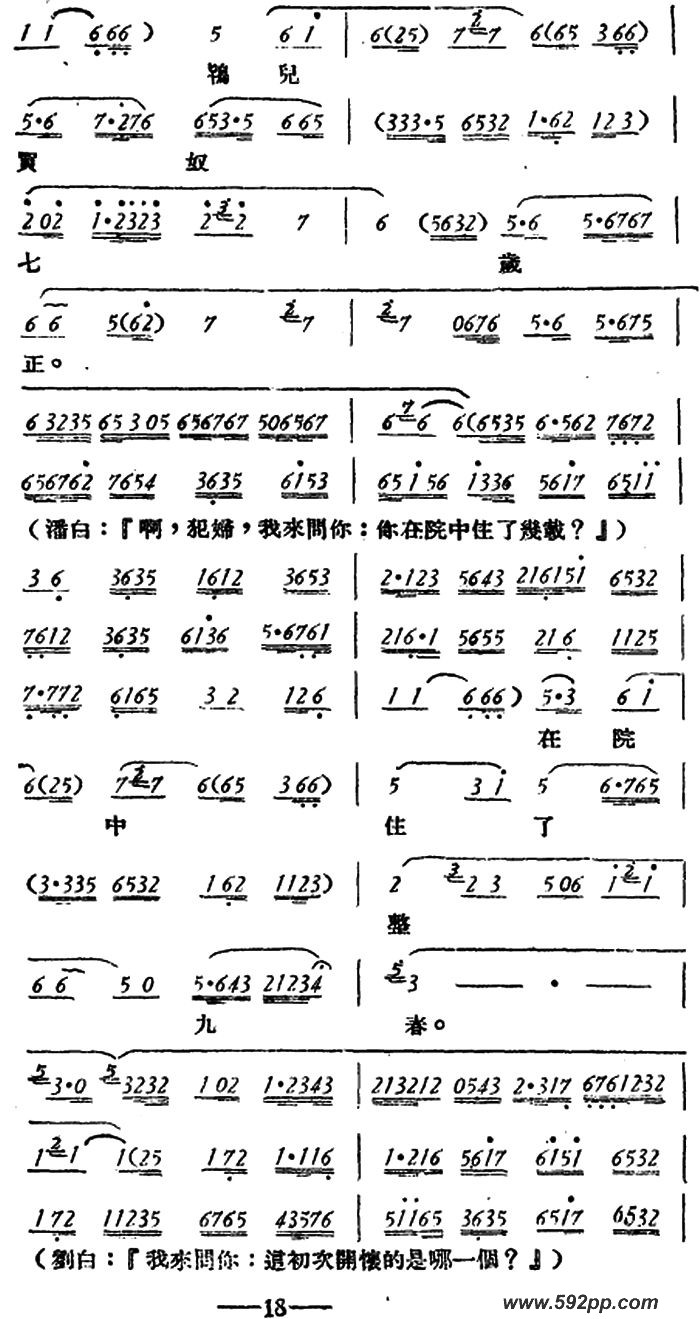 1 i 6 66) 5 6 i | 6(25) 7 2 7 6(65 3 66) |
鴇 兒
5·6 7·276 653·5 6 65 | (333·5 6532 1·62 12 3)
買 奴
2 02 1·2323 2 3 2 7 | 6 (5632) 5·6 5·6767 |
七 歲
6 6 5(62) 7 2 7 | 2 7 0676 5·6 5·675 |
正。
6 3235 65 3 05 656767 506567 | 6 7 6 6(6535 6·562 7672 |
656762 7654 3635 6153 | 65 i 56 i336 5617 6511 |
（潘白：『啊，犯婦，我來問你：你在院中住了幾載？』）
3 6 3635 1612 3653 | 2·123 5643 216151 6532 |
7612 3635 6136 5·6761 | 216·1 5655 21 6 1125 |
7·772 6165 3 2 12 6 | 1 1 6 66) 5·3 6 i |
在 院
6(25) 7 2 7 6(65 3 66) | 5 3 i 5 6·765 |
中 住 了
(3·335 6532 1 62 1123) | 2 3 2 3 5 06 i 2 i |
整
6 6 5 0 5·643 21234 | 5 3 — · — |
九 春。
5 3·0 5 3232 1 02 1·2343 | 213212 0543 2·317 6761232 |
1 2 1 1(25 1 72 1·116 | 1·216 5617 6151 6532 |
1 72 11235 6765 43576 | 51165 3635 6517 6532 |
（劉白：『我來問你：這初次開懷的是哪一個？』）
—18—
www.592pp.com